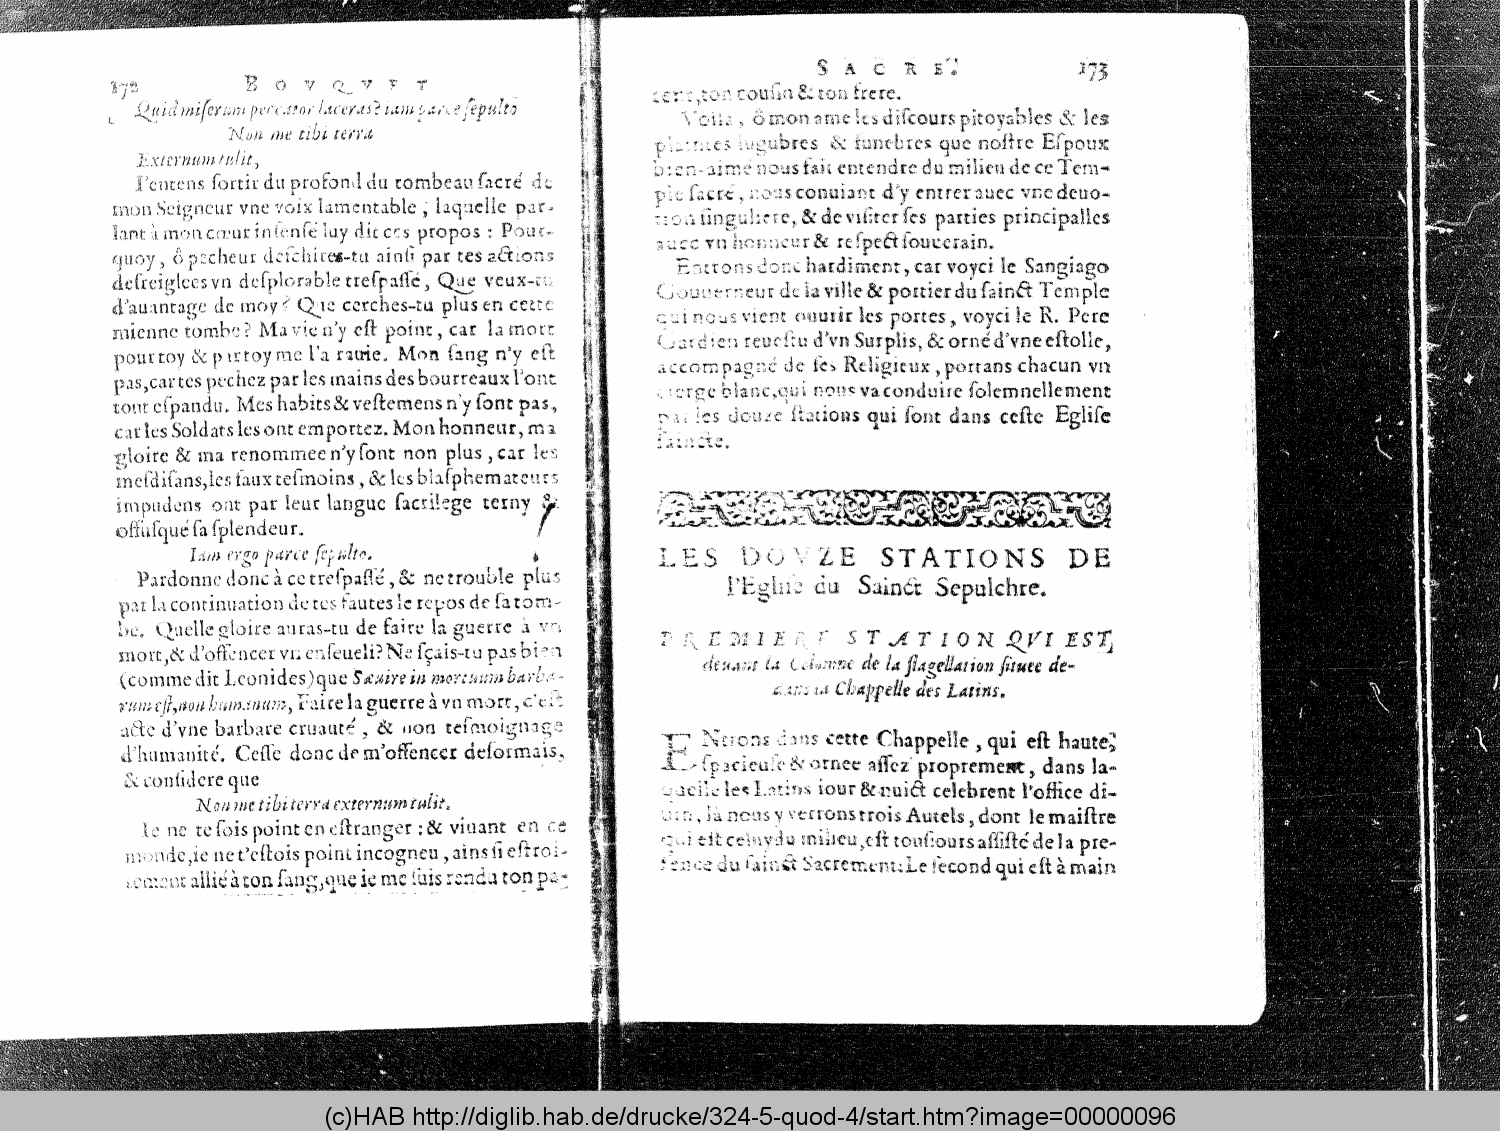 172 BOVQVET
Quid miserum peccator laceras? iam parce sepulto
Non me tibi terra
Externum tulit,
I'entens sortir du profond du tombeau sacré de
mon Seigneur vne voix lamentable, laquelle par-
lant à mon cœur insensé luy dit ces propos : Pour-
quoy, ô pecheur deschires-tu ainsi par tes actions
desreiglees vn desplorable trespassé, Que veux-tu
d'auantage de moy? Que cerches-tu plus en cette
mienne tombe? Ma vie n'y est point, car la mort
pour toy & par toy me l'a rauie. Mon sang n'y est
pas, car tes pechez par les mains des bourreaux l'ont
tout espandu. Mes habits & vestemens n'y sont pas,
car les Soldats les ont emportez. Mon honneur, ma
gloire & ma renommee n'y sont non plus, car les
mesdisans, les faux tesmoins, & les blasphemateurs
impudens ont par leur langue sacrilege terny &
offusqué sa splendeur.
Iam ergo parce sepulto.
Pardonne donc à ce trespassé, & ne trouble plus
par la continuation de tes fautes le repos de sa tom-
be. Quelle gloire auras-tu de faire la guerre à vn
mort, & d'offencer vn enseueli? Ne sçais-tu pas bien
(comme dit Leonides) que Sæuire in mortuum barba-
rum est, non humanum, Faire la guerre à vn mort, c'est
acte d'vne barbare cruauté, & non tesmoignage
d'humanité. Cesse donc de m'offencer desormais,
& considere que
Non me tibi terra externum tulit.
Ie ne te sois point en estranger : & viuant en ce
monde, ie ne t'estois point incogneu, ains si estroi-
tement allié à ton sang, que ie me suis rendu ton pa-
SACRE. 173
rent, ton cousin & ton frere.
Voila, ô mon ame les discours pitoyables & les
plaintes lugubres & funebres que nostre Espoux
bien-aimé nous fait entendre du milieu de ce Tem-
ple sacré, nous conuiant d'y entrer auec vne deuo-
tion singuliere, & de visiter ses parties principalles
auec vn honneur & respect souuerain.
Entrons donc hardiment, car voyci le Sangiago
Gouuerneur de la ville & portier du sainct Temple
qui nous vient ouurir les portes, voyci le R. Pere
Gardien reuestu d'vn Surplis, & orné d'vne estolle,
accompagné de ses Religieux, portans chacun vn
cierge blanc, qui nous va conduire solemnellement
par les douze stations qui sont dans ceste Eglise
saincte.
LES DOVZE STATIONS DE
l'Eglise du Sainct Sepulchre.
PREMIERE STATION QVI EST,
deuant la Colomne de la flagellation situee de-
dans la Chappelle des Latins.
ENtrons dans cette Chappelle, qui est haute,
spacieuse & ornee assez proprement, dans la-
quelle les Latins iour & nuict celebrent l'office di-
uin, là nous y verrons trois Autels, dont le maistre
qui est celuy du milieu, est tousiours assisté de la pre-
sence du sainct Sacrement: Le second qui est à main
(c)HAB http://diglib.hab.de/drucke/324-5-quod-4/start.htm?image=00000096